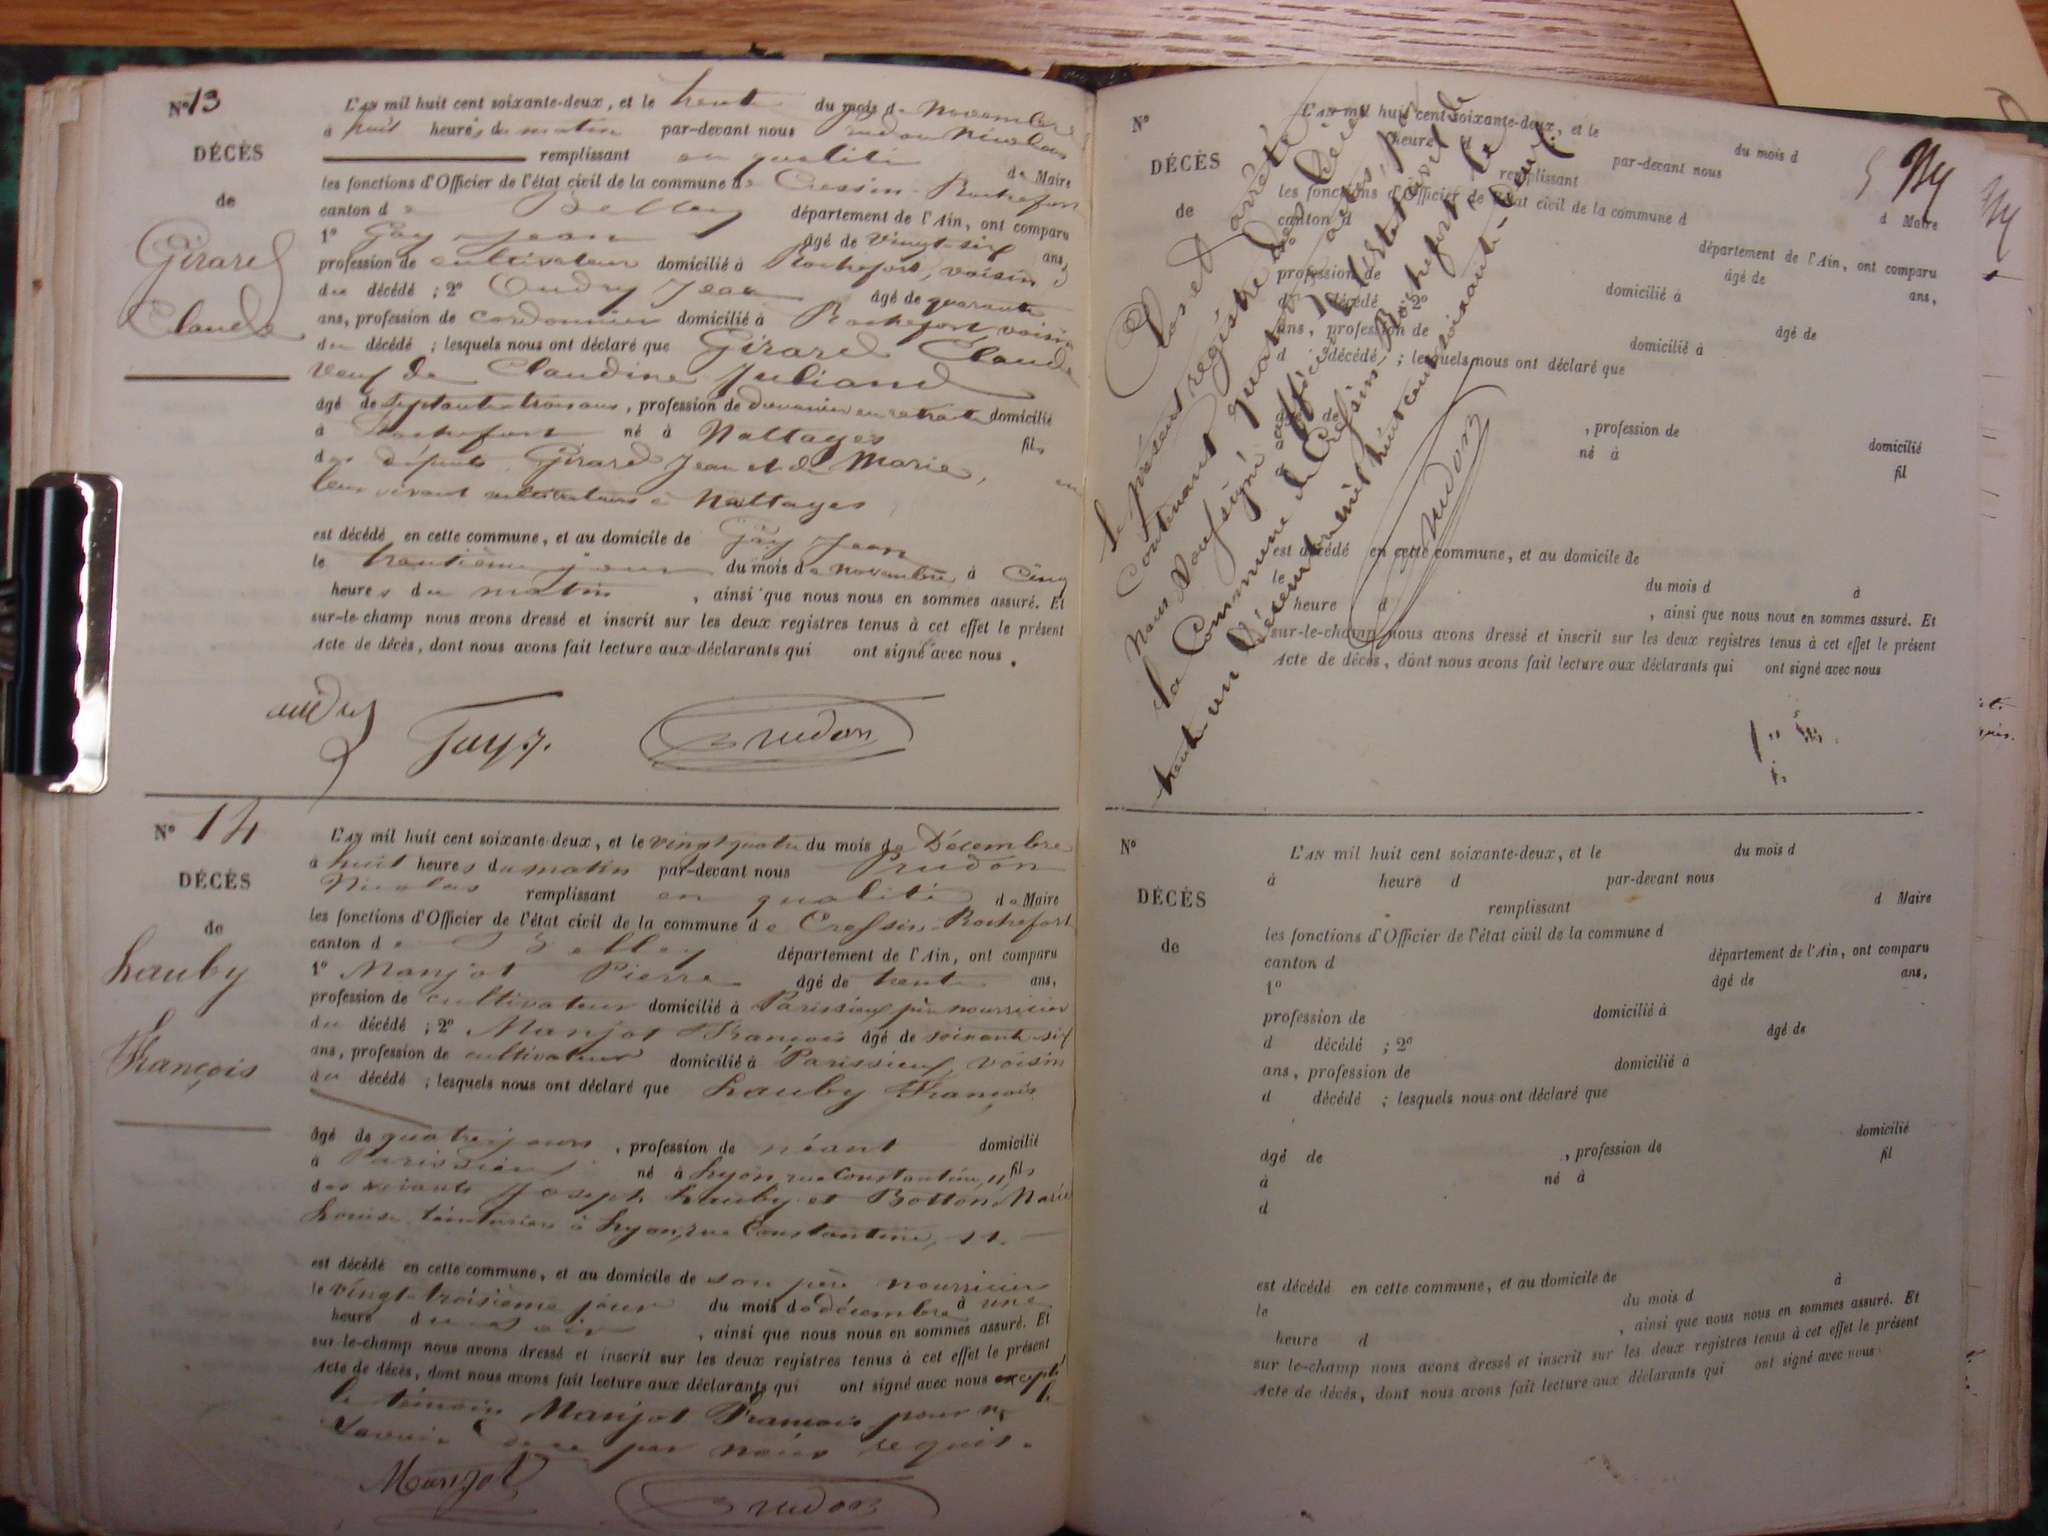 N° 13
DÉCÈS
de
Girard
Claude
L'AN mil huit cent soixante-deux, et le trente du mois de Novembre
à huit heures du matin par-devant nous Prudon Nicolas
remplissant en qualité de Maire
les fonctions d'Officier de l'état civil de la commune de Cressin-Rochefort
canton de Belley département de l'Ain, ont comparu
1° Gay Jean âgé de vingt-six ans,
profession de cultivateur domicilié à Rochefort, voisin
du décédé ; 2° Oudry Jean âgé de quarante
ans, profession de cordonnier domicilié à Rochefort, voisin
du décédé ; lesquels nous ont déclaré que Girard Claude
Veuf de Claudine Juliand
âgé de septante trois ans, profession de douanier en retraite domicilié
à Rochefort né à Nattages fils
des défunts Girard Jean et de Marie, en
leur vivant cultivateurs à Nattages
est décédé en cette commune, et au domicile de Gay Jean
le trentième jour du mois de novembre à Cinq
heures du matin, ainsi que nous nous en sommes assuré. Et
sur-le-champ nous avons dressé et inscrit sur les deux registres tenus à cet effet le présent
Acte de décès, dont nous avons fait lecture aux déclarants qui ont signé avec nous.
Gay J. Prudon
N° 14
DÉCÈS
de
Lauby
François
L'AN mil huit cent soixante-deux, et le vingt quatre du mois de Décembre
à huit heures du matin par-devant nous Prudon
Nicolas remplissant en qualité de Maire
les fonctions d'Officier de l'état civil de la commune de Cressin-Rochefort
canton de Belley département de l'Ain, ont comparu
1° Manjot Pierre âgé de trente ans,
profession de cultivateur domicilié à Parissieux père nourricier
du décédé ; 2° Manjot François âgé de soixante-six
ans, profession de cultivateur domicilié à Parissieux, voisin
du décédé ; lesquels nous ont déclaré que Lauby François
âgé de quatre jours, profession de néant domicilié
à Parissieux né à Lyon, rue Constantine, 11, fils
des vivants Joseph Lauby et Botton Marie
Louise, teinturiers à Lyon, rue Constantine, 11.
est décédé en cette commune, et au domicile de son père nourricier
le vingt-troisième jour du mois de décembre à une
heure du soir, ainsi que nous nous en sommes assuré. Et
sur-le-champ nous avons dressé et inscrit sur les deux registres tenus à cet effet le présent
Acte de décès, dont nous avons fait lecture aux déclarants qui ont signé avec nous excepté
le témoin Manjot François pour ne le
savoir de ce par nous requis.
Manjot Prudon
N°
DÉCÈS
de
L'AN mil huit cent soixante-deux, et le du mois d
heure d par-devant nous
remplissant d Maire
les fonctions d'Officier de l'état civil de la commune d
canton d département de l'Ain, ont comparu
âgé de ans,
profession de domicilié à
d décédé 2° âgé de
ans, profession de domicilié à
d décédé ; lesquels nous ont déclaré que
âgé de , profession de domicilié
né à fil
est décédé en cette commune, et au domicile de
le du mois d à
heure d , ainsi que nous nous en sommes assuré. Et
sur-le-champ nous avons dressé et inscrit sur les deux registres tenus à cet effet le présent
Acte de décès, dont nous avons fait lecture aux déclarants qui ont signé avec nous
Clos et arrêté
le présent registre des Décès
Contenant quatorze actes, par
Nous soussigné officier de l'État civil de
la Commune de Cressin-Rochefort, le
trente un Décembre mil huit cent soixante-deux.
Prudon
N°
DÉCÈS
de
L'AN mil huit cent soixante-deux, et le du mois d
à heure d par-devant nous
remplissant d Maire
les fonctions d'Officier de l'état civil de la commune d
canton d département de l'Ain, ont comparu
1° âgé de ans,
profession de domicilié à
d décédé ; 2° âgé de
ans, profession de domicilié à
d décédé ; lesquels nous ont déclaré que
âgé de , profession de domicilié
à né à fil
d
est décédé en cette commune, et au domicile de
le du mois d à
heure d , ainsi que nous nous en sommes assuré. Et
sur le-champ nous avons dressé et inscrit sur les deux registres tenus à cet effet le présent
Acte de décès, dont nous avons fait lecture aux déclarants qui ont signé avec nous